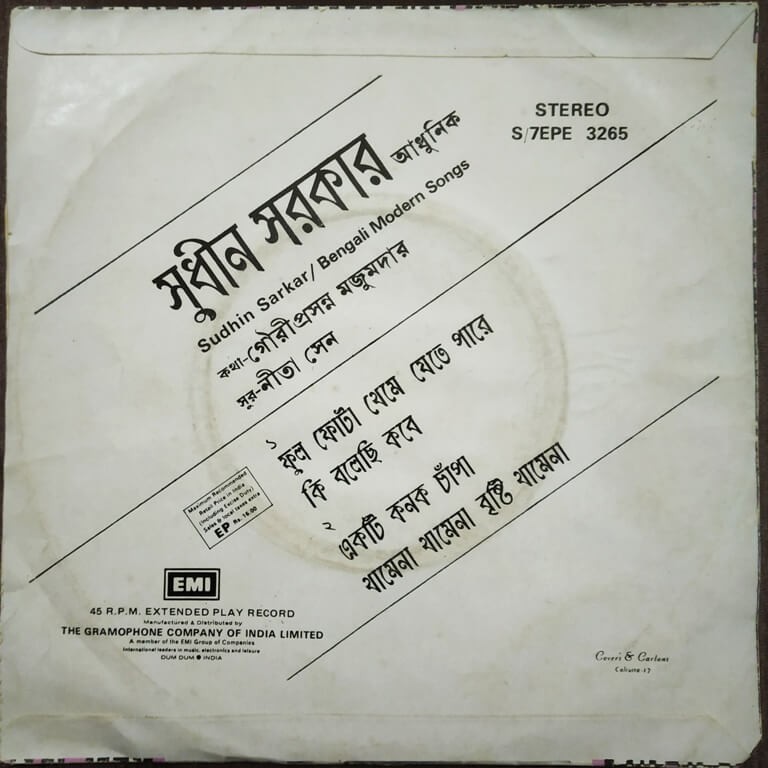 STEREO
S/7EPE 3265
সুধীন সরকার আধুনিক
Sudhin Sarkar/Bengali Modern Songs
কথা-গৌরীপ্রসন্ন মজুমদার
সুর-নীতা সেন
১ ফুল ফোটা থেমে যেতে পারে
কি বলেছি কবে
২ একটি কনক চাঁপা
থামেনা থামেনা বৃষ্টি থামেনা
Maximum Recommended
Retail Price in India
(Including Excise Duty)
Sales & local taxes extra
EP Rs. 16.00
EMI
45 R.P.M. EXTENDED PLAY RECORD
Manufactured & Distributed by
THE GRAMOPHONE COMPANY OF INDIA LIMITED
A member of the EMI Group of Companies
International leaders in music, electronics and leisure
DUM DUM ● INDIA
Covers & Cartons
Calcutta-17